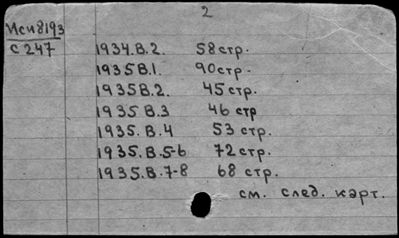 2
Иси8193
С247
1934.В.2. 58 стр.
1935В.1. 90стр.
1935В.2. 45 стр.
1935.В.3 46 стр
1935.В.4 53 стр.
1935.В.5-6 72 стр.
1935.В.7-8 68 стр.
см. след. карт.